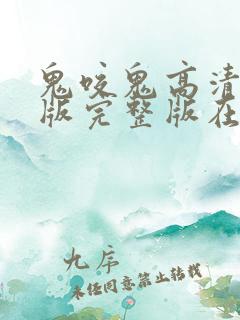 鬼咬鬼高清
版完整版在
九序
未经同意禁止转载